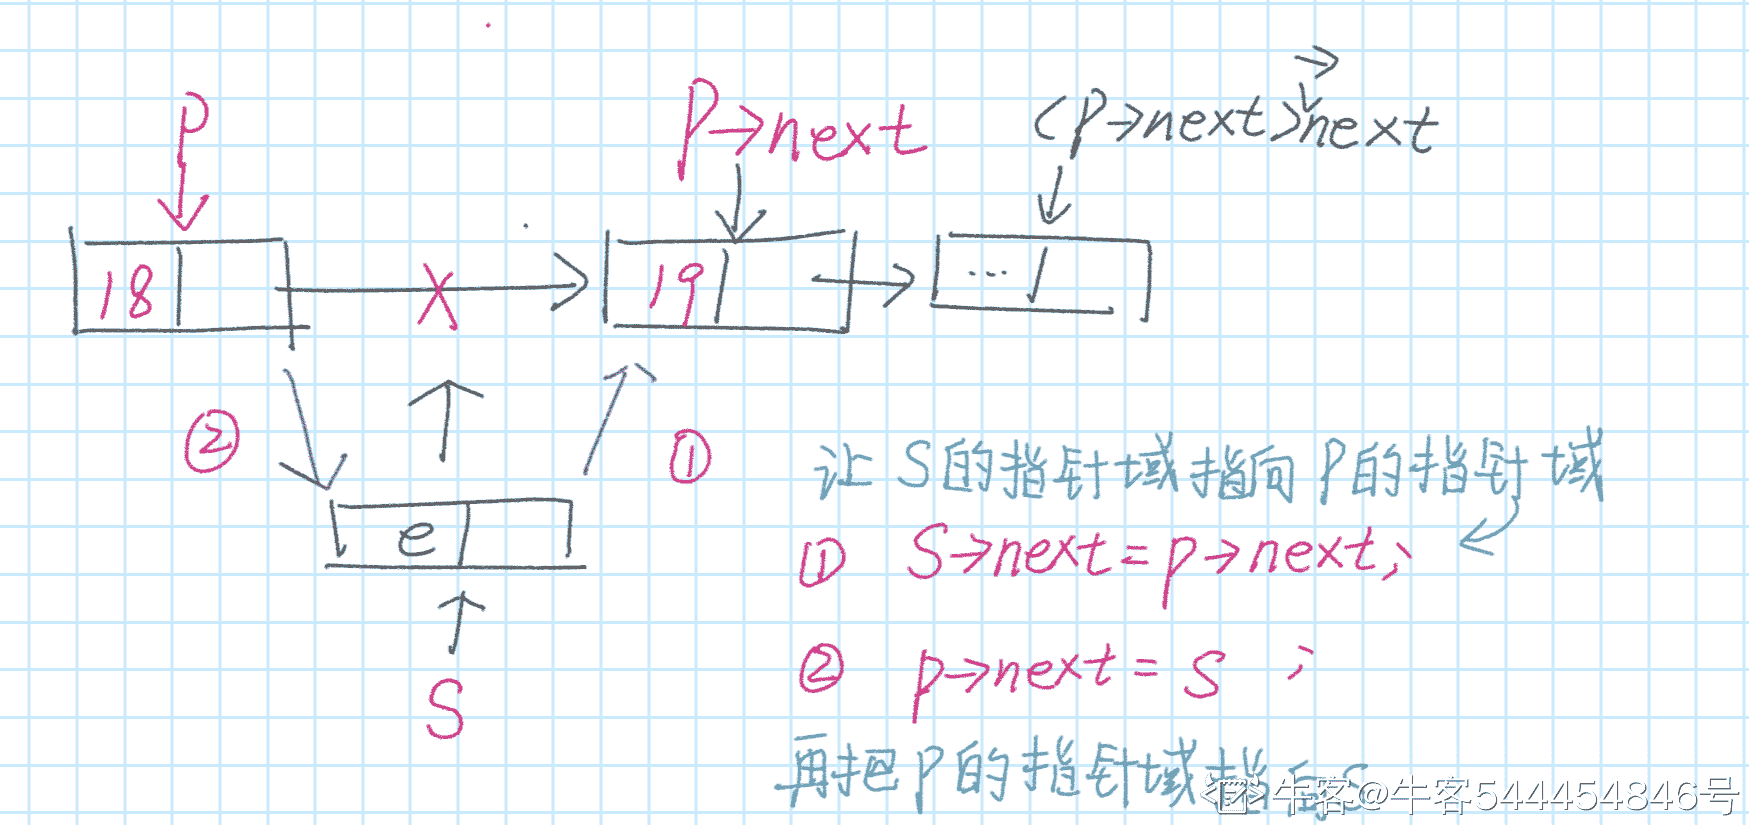 P
P→next
(P→next)→next
18
19
...
②
①
e
S
让S的指针域指向P的指针域
① S→next=p→next;
② p→next=S ;
再把P的指针域指向S
牛客@牛客544454846号